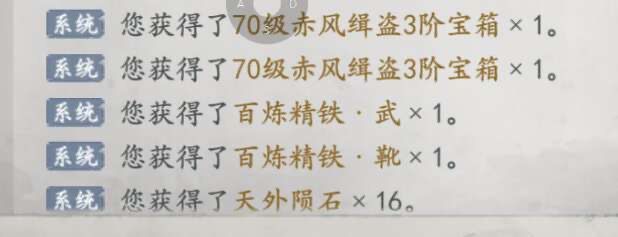 系统 您获得了70级赤风缉盗3阶宝箱×1。
系统 您获得了70级赤风缉盗3阶宝箱×1。
系统 您获得了百炼精铁·武×1。
系统 您获得了百炼精铁·靴×1。
系统 您获得了天外陨石×16。
A D